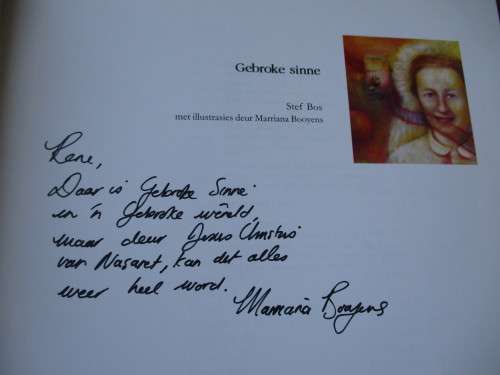 Gebroke sinne
Stef Bos
met illustrasies deur Marriana Booyens
Rene,
Daar is Gebroke Sinne
in 'n Gebroke wêreld,
maar deur Jesus Christus
van Nasaret, kan dit alles
weer heel word.
Marriana Booyens